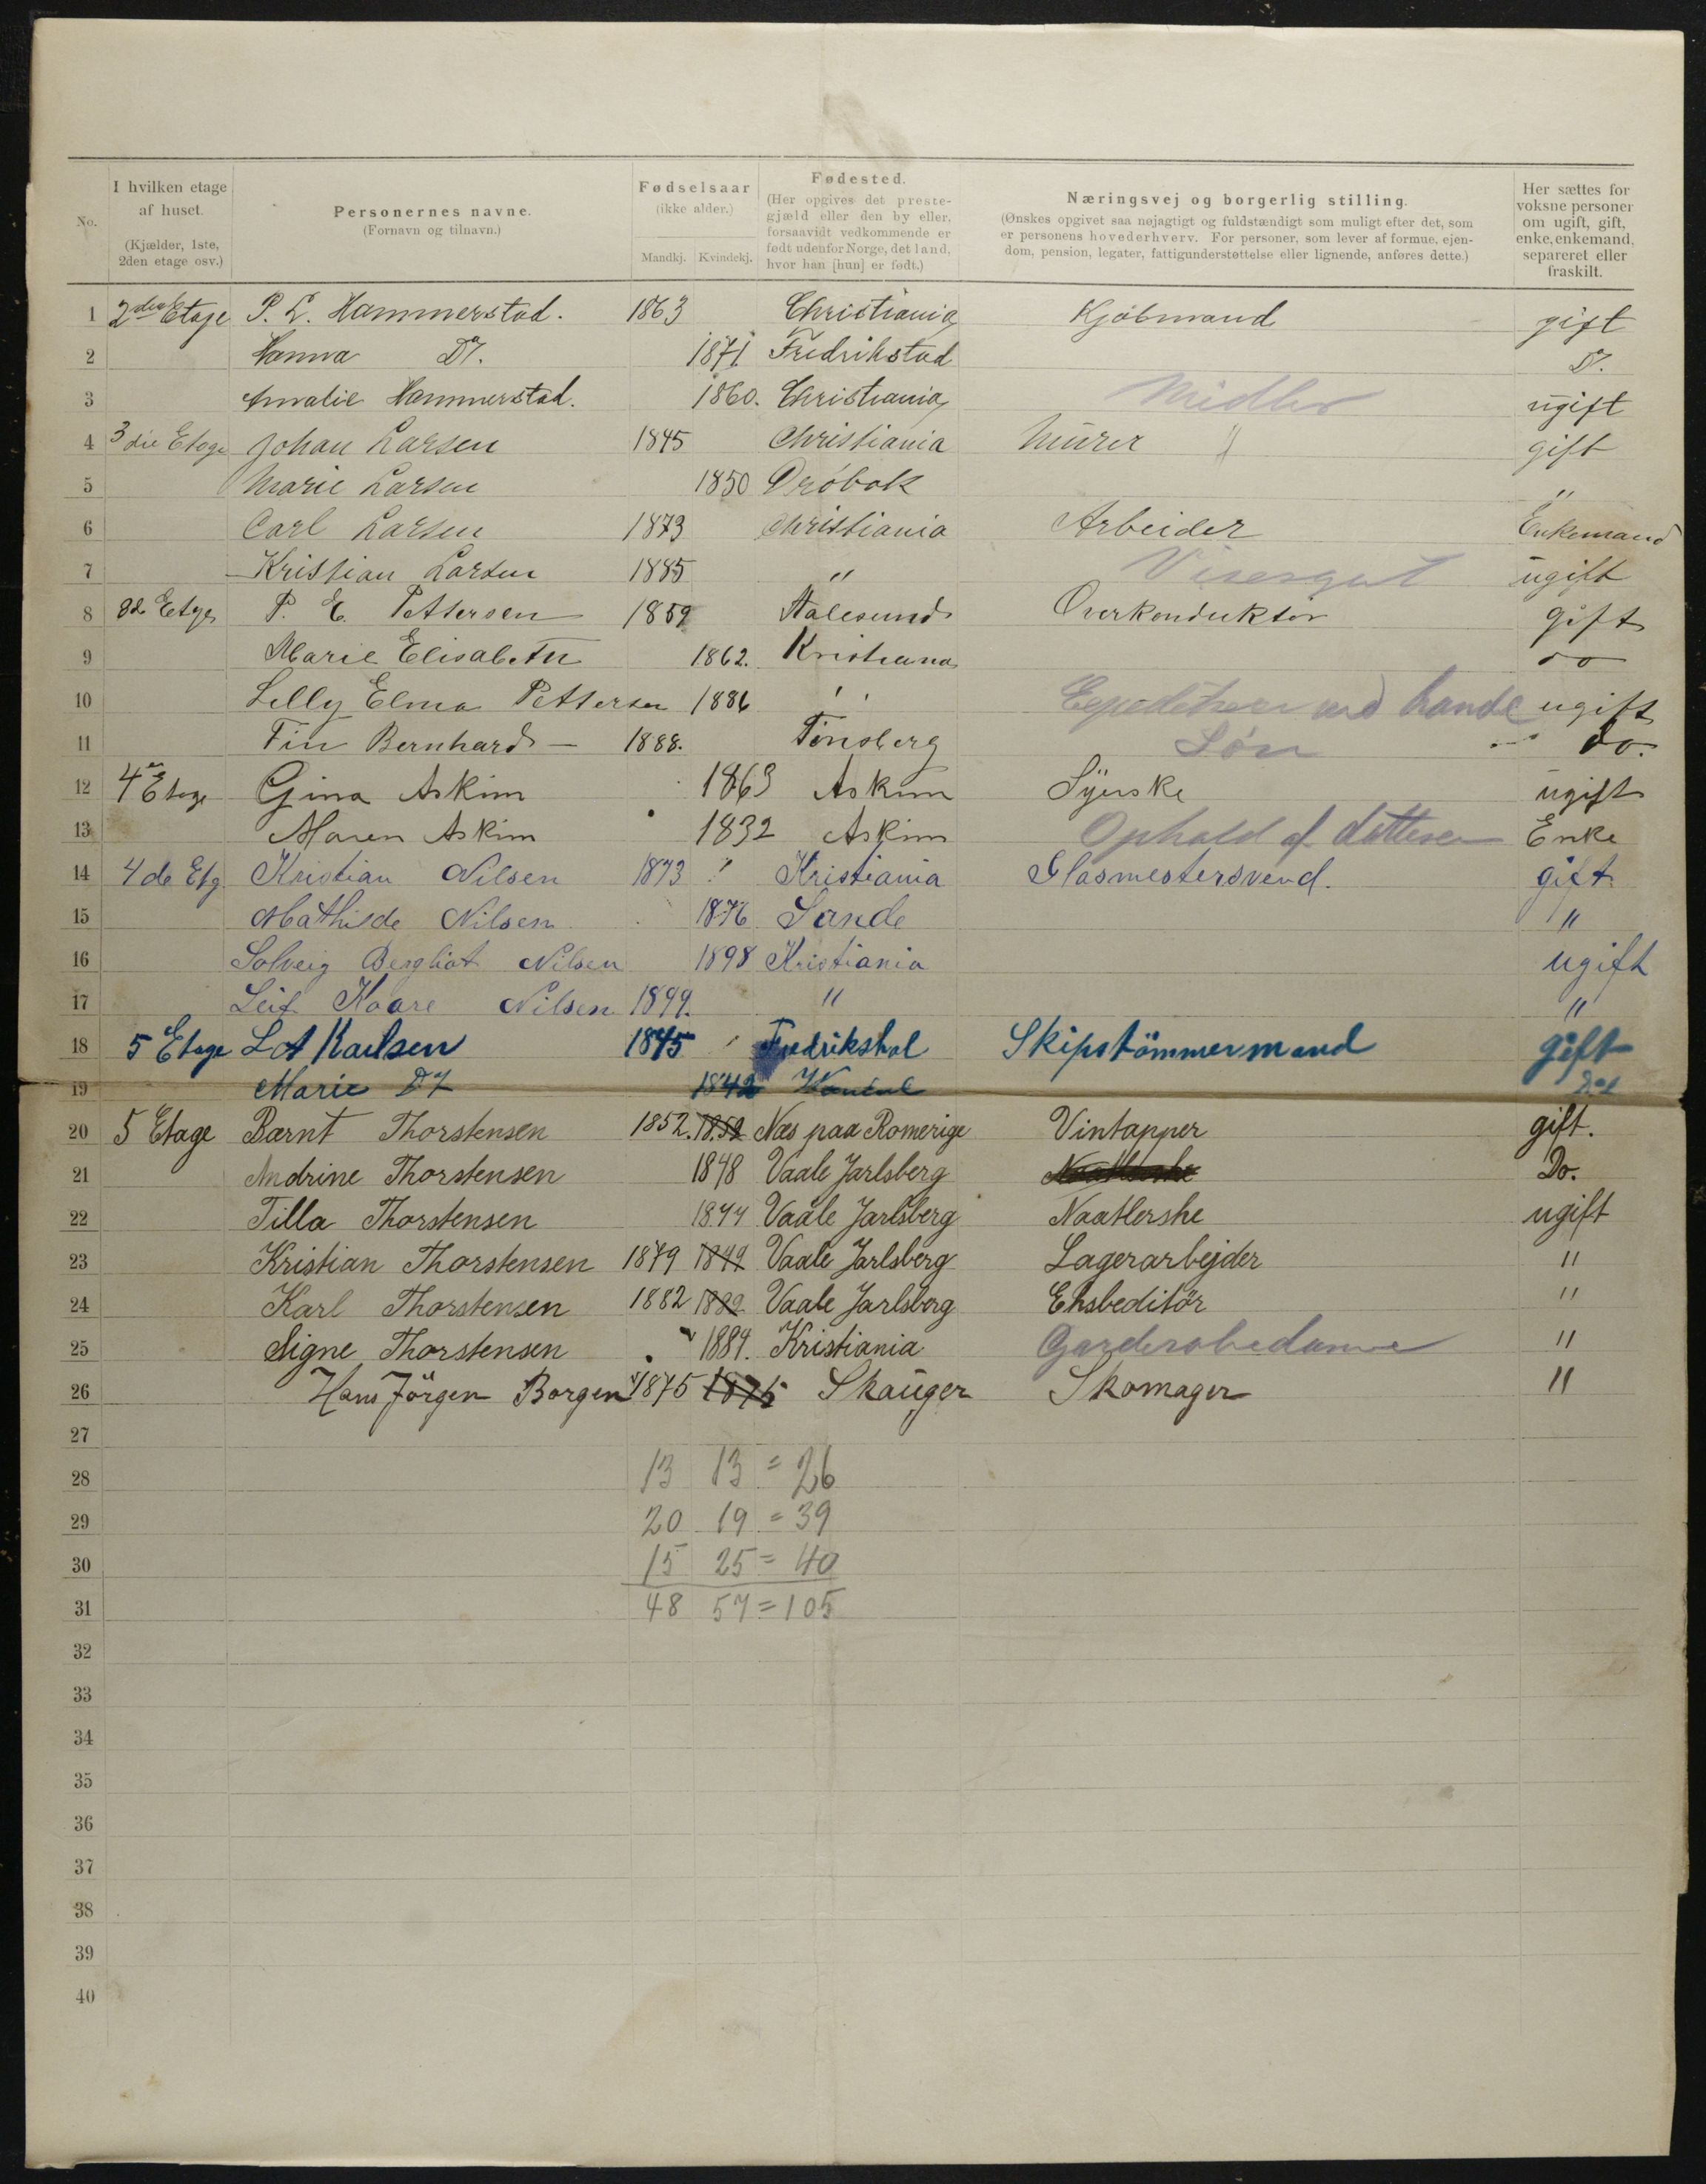 No.
I hvilken etage af huset. (Kjælder, 1ste, 2den etage osv.)
Personernes navne. (Fornavn og tilnavn.)
Fødselsaar (ikke alder.) Mandkj. Kvindekj.
Fødested. (Her opgives det prestegjæld eller den by eller, forsaavidt vedkommende er født udenfor Norge, det land, hvor han [hun] er født.)
Næringsvej og borgerlig stilling. (Ønskes opgivet saa nøjagtigt og fuldstændigt som muligt efter det, som er personens hovederhverv. For personer, som lever af formue, ejendom, pension, legater, fattigunderstøttelse eller lignende, anføres dette.)
Her sættes for voksne personer om ugift, gift, enke, enkemand, separeret eller fraskilt.
1 2den Etage P. L. Hammerstad. 1863 Christiania Kjöbmand gift
2 Hanna Do. 1871 Fredrikstad D.
3 Amalie Hammerstad. 1860. Christiania Midler ugift
4 3die Etage Johan Larsen 1845 Christiania Murer gift
5 Marie Larsen 1850 Dröbak "
6 Carl Larsen 1873 Christiania Arbeider Enkemand
7 Kristian Larsen 1885 " Visergut ugift
8 Etge P. E. Pettersen 1859 Aalesund Overkonduktör gift
9 Marie Elisabeth 1862. Kristiana do
10 Lilly Elma Pettersen 1886 " ugift
11 Fin Bernhard — 1888. Tönsberg Søn do.
12 4 Etage Gina Askim 1863 Askim Syerske ugift
13 Maren Askim 1832 Askim Ophold af datteren Enke
14 4de Etg. Kristian Nilsen 1873 " Kristiania Glasmestersvend. gift
15 Mathilde Nilsen 1876 Sande "
16 Solveig Bergliot Nilsen 1898 Kristiania ugift
17 Leif Kaare Nilsen 1899. " "
18 5 Etage L A Karlsen 1845 " Fredrikshal Skipstömmermand gift
19 Marie Do 1842
20 5 Etage Bærnt Thorstensen 1852. 1852 Næs paa Romerige Vintapper gift.
21 Andrine Thorstensen 1848 Vaale Jarlsberg Do.
22 Tilla Thorstensen 1844 Vaale Jarlsberg Naatlerske ugift
23 Kristian Thorstensen 1879 1849 Vaale Jarlsberg Lagerarbejder "
24 Karl Thorstensen 1882 1882 Vaale Jarlsberg Eksbeditör "
25 Signe Thorstensen 1884. Kristiania Garderobedame "
26 Hans Jörgen Borgen 1875 1875 Skauger Skomager "
27
28 13 13 = 26
29 20 19 = 39
30 15 25 = 40
31 48 57 = 105
32
33
34
35
36
37
38
39
40